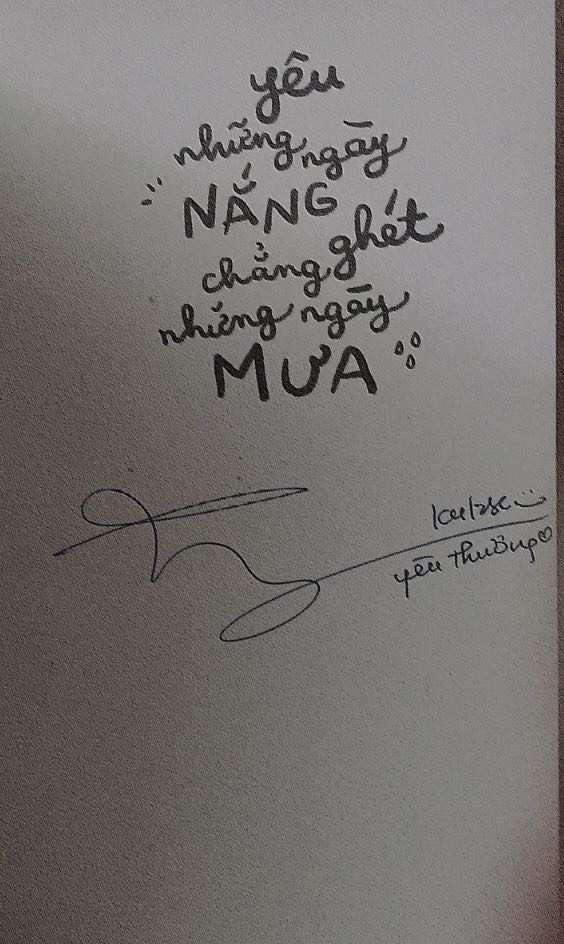 yêu
những ngày
NẮNG
chẳng ghét
những ngày
MƯA
yêu thương